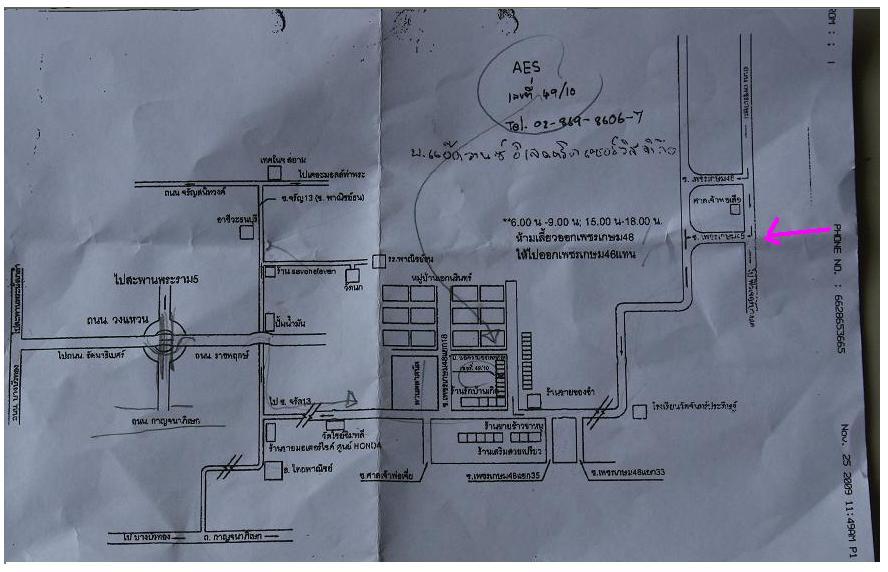 AES
เลขที่ 49/10
Tel. 02-869-8606-7
เทคโนฯ สยาม
ไปเดอะมอลล์ท่าพระ
ถนน จรัญสนิทวงศ์
ซ.จรัญ13 (ซ. พาณิชย์ธน)
อาชีวะธนบุรี
**6.00 น -9.00 น; 15.00 น-18.00 น.
ห้ามเลี้ยวออกเพชรเกษม48
ให้ไปออกเพชรเกษม46แทน
ซ. เพชรเกษม46
ศาลเจ้าพ่อเสือ
ถนน เพชรเกษม
รร.พาณิชย์ธน
ไปสะพานพระราม5
ร้าน
วัดนก
หมู่บ้านเอกนรินทร์
ถนน. วงแหวน
ปั้มน้ำมัน
ไปถนน. รัตนาธิเบศร์
ถนน. ราชพฤกษ์
ซ.เพชรเกษม48แยก18
เลขที่ 49/10
ร้านรักบ้านเกิด
ไป ซ. จรัล13
ร้านขายของชำ
ถนน. กาญจนาภิเษก
ร้านขายข้าวขาหมู
ร้านขายมอเตอร์ไซค์ ศูนย์ HONDA
ร้านเสริมสวยเปรียว
ธ. ไทยพาณิชย์
ซ.ศาลเจ้าพ่อเจี่ย
ซ.เพชรเกษม48แยก35
ซ.เพชรเกษม48แยก33
ไป บางบัวทอง
ถ. กาญจนาภิเษก
ROM : : 1
PHONE NO. : 6628653665
Nov. 25 2009 11:49AM P1